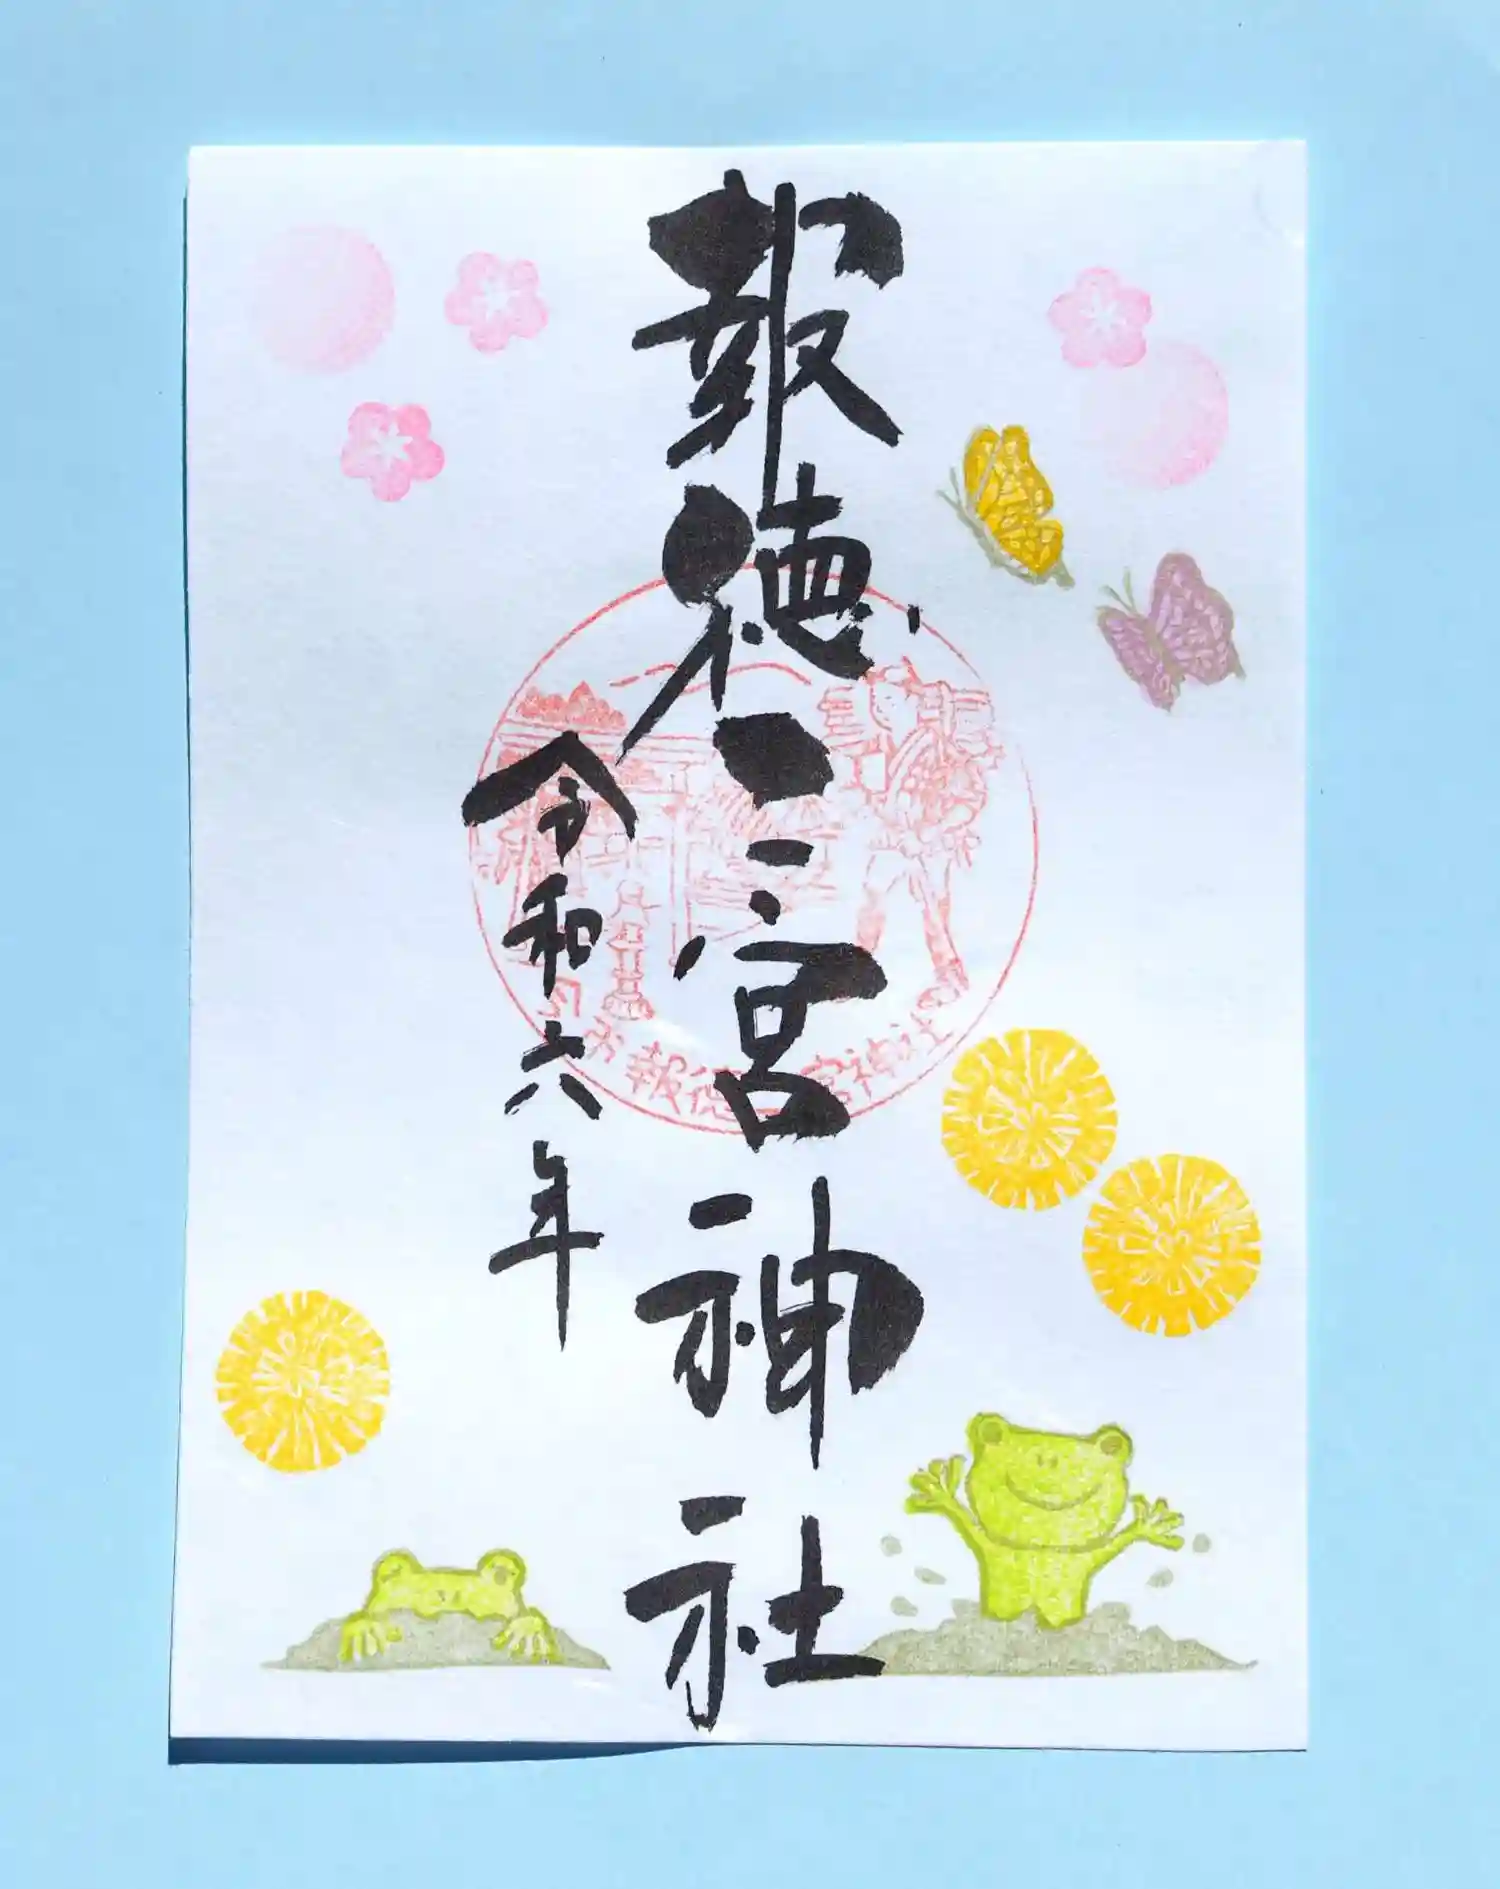 報徳二宮神社
令和六年
報徳二宮神社